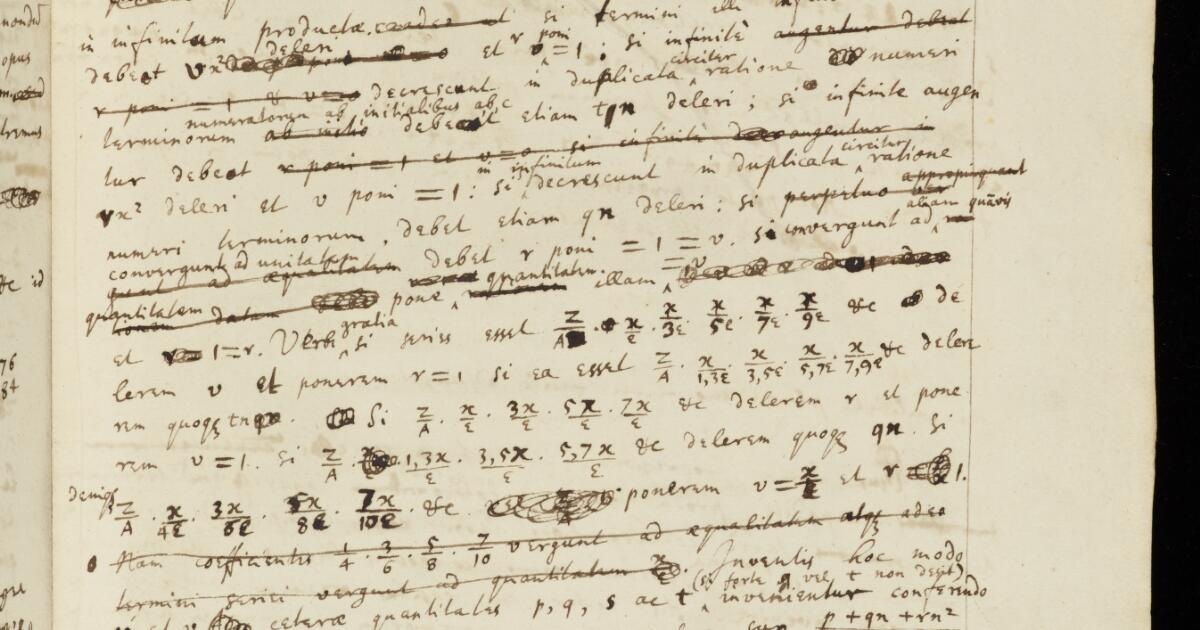 in infinitum productæ si termini illi
debet vx² deleri et r poni v = 1 : si infinite augentur debet
r poni = 1 & v = 0 decrescunt in duplicata circiter ratione numeri
terminorum ab initio numeratorum ab initialibus a, b, c debet etiam tqn deleri ; si infinite augen
tur debet r poni = 1 et v = 0 si infinite augentur in
vx² deleri et v poni = 1 : si in infinitum decrescunt in duplicata circiter ratione
numeri terminorum, debet etiam qn deleri : si perpetuo appropinquant
convergunt ad unitatem ad æqualitatem debet r poni = 1 = v. si convergunt ad aliam quāvis
quantitatem datam pone quantitatem illam = v
et 1 = r. Verbi gratia si series esset z/A . x/ε . x/3ε x/5ε x/7ε x/9ε &c de
lerem v et ponerem r = 1 si ea esset z/A . x/1,3ε . x/3,5ε . x/5,7ε . x/7,9ε &c delere
rem quoqꝫ tnqn. Si z/A . x/ε . 3x/ε . 5x/ε . 7x/ε &c delerem r et pone
rem v = 1. si z/A . x/ε . 1,3x/ε . 3,5x/ε . 5,7x/ε &c delerem quoqꝫ qn. si
deniqꝫ z/A . x/4ε . 3x/6ε . 5x/8ε . 7x/10ε . &c. ponerem v = x/ε et r = 1.
Nam coefficientes 1/4 . 3/6 . 5/8 . 7/10 vergunt ad æqualitatem atqꝫ adeo
termini seriei vergunt ad quantitatem x/ε. Inventis hoc modo
et v ceteræ quantitates p, q, s ac t (si forte q vel t non desit) invenientur conferendo
cum p + qn + rn²